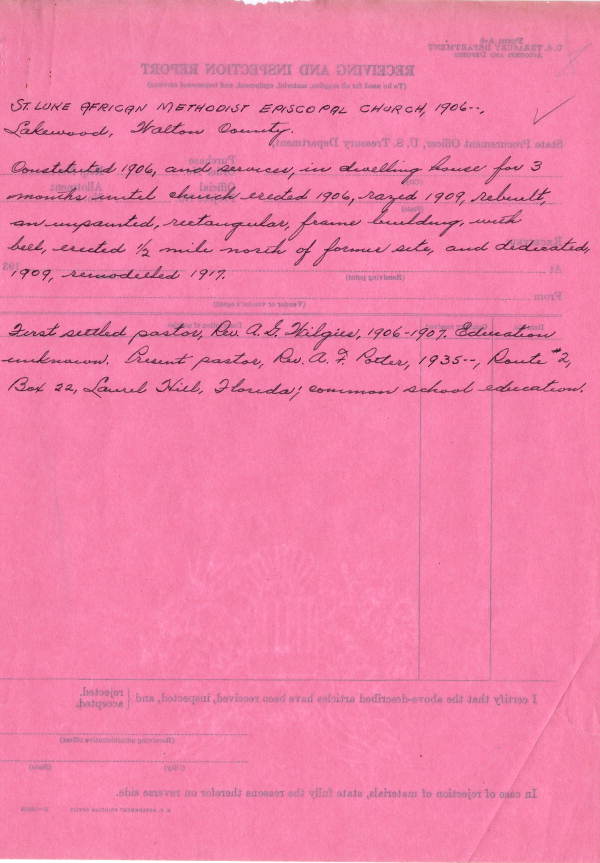 ST. LUKE AFRICAN METHODIST EPISCOPAL CHURCH, 1906--,
Lakewood, Walton County.
Constituted 1906, and services, in dwelling house for 3
months until church erected 1906, razed 1909, rebuilt,
an unpainted, rectangular, frame building, with
bell, erected 1/2 mile north of former site, and dedicated,
1909, remodelled 1917.
First settled pastor, Rev. A. G. Hilgies, 1906-1907. Education
unknown. Present pastor, Rev. A. F. Potter, 1935--, Route #2,
Box 22, Laurel Hill, Florida; common school education.
Form A-6
U. S. TREASURY DEPARTMENT
RECEIVING AND INSPECTION REPORT
(To be used for all supplies, material, equipment, and nonpersonal services)
State Procurement Officer, U. S. Treasury Department,
Purchase
Official
Allotment
At
193
(Receiving point)
From
(Vendor or vendor's agent)
I certify that the above-described articles have been received, inspected, and
rejected.
accepted.
(Receiving administrative officer)
(City)
(State)
In case of rejection of materials, state fully the reasons therefor on reverse side.
U. S. GOVERNMENT PRINTING OFFICE